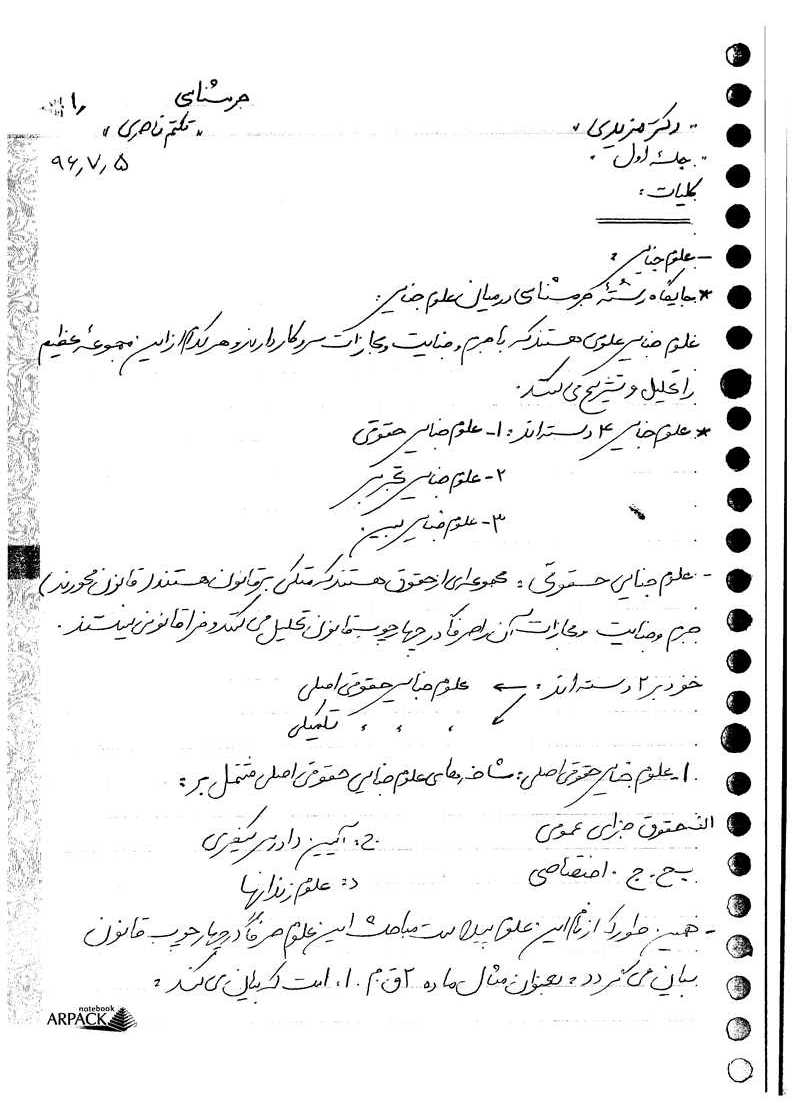 جرمشناسی
۱
" دکتر مزیدی "
" تکتم ناصری "
" جلسه اول "
۹۶٫۷٫۵
کلیات :
- علوم جنایی :
* جایگاه رشتهٔ جرمشناسی در میان علوم جنایی :
علوم جنایی علومی هستند که با جرم و جنایت و مجازات سر و کار دارند و هر کدام از این مجموعهٔ عظیم
را تحلیل و تشریح می کنند .
* علوم جنایی ۴ دسته اند : ۱- علوم جنایی حقوقی
۲- علوم جنایی تجربی
۳- علوم جنایی
- علوم جنایی حقوقی : مجموعه ای از حقوق هستند که متکی بر قانون هستند ( قانون محورند )
جرم و جنایت و مجازات آن را صرفاً در چهارچوب قانون تحلیل می کنند و فراقانونی نیستند .
خود بر ۲ دسته اند : ← علوم جنایی حقوقی اصلی
↙ ، ، ، تکمیلی
۱- علوم جنایی حقوقی اصلی : شاخه های علوم جنایی حقوقی اصلی مشتمل بر :
الف حقوق جزای عمومی
ج : آیین دادرسی کیفری
ب ح . ج . اختصاصی
د : علوم زندانها
- همین طور که از نام این علوم پیداست مباحث این علوم صرفاً در چهارچوب قانون
بیان می گردد : بعنوان مثال ماده ۲ ق . م . ا ، است که بیان می کند :
notebook
ARPACK